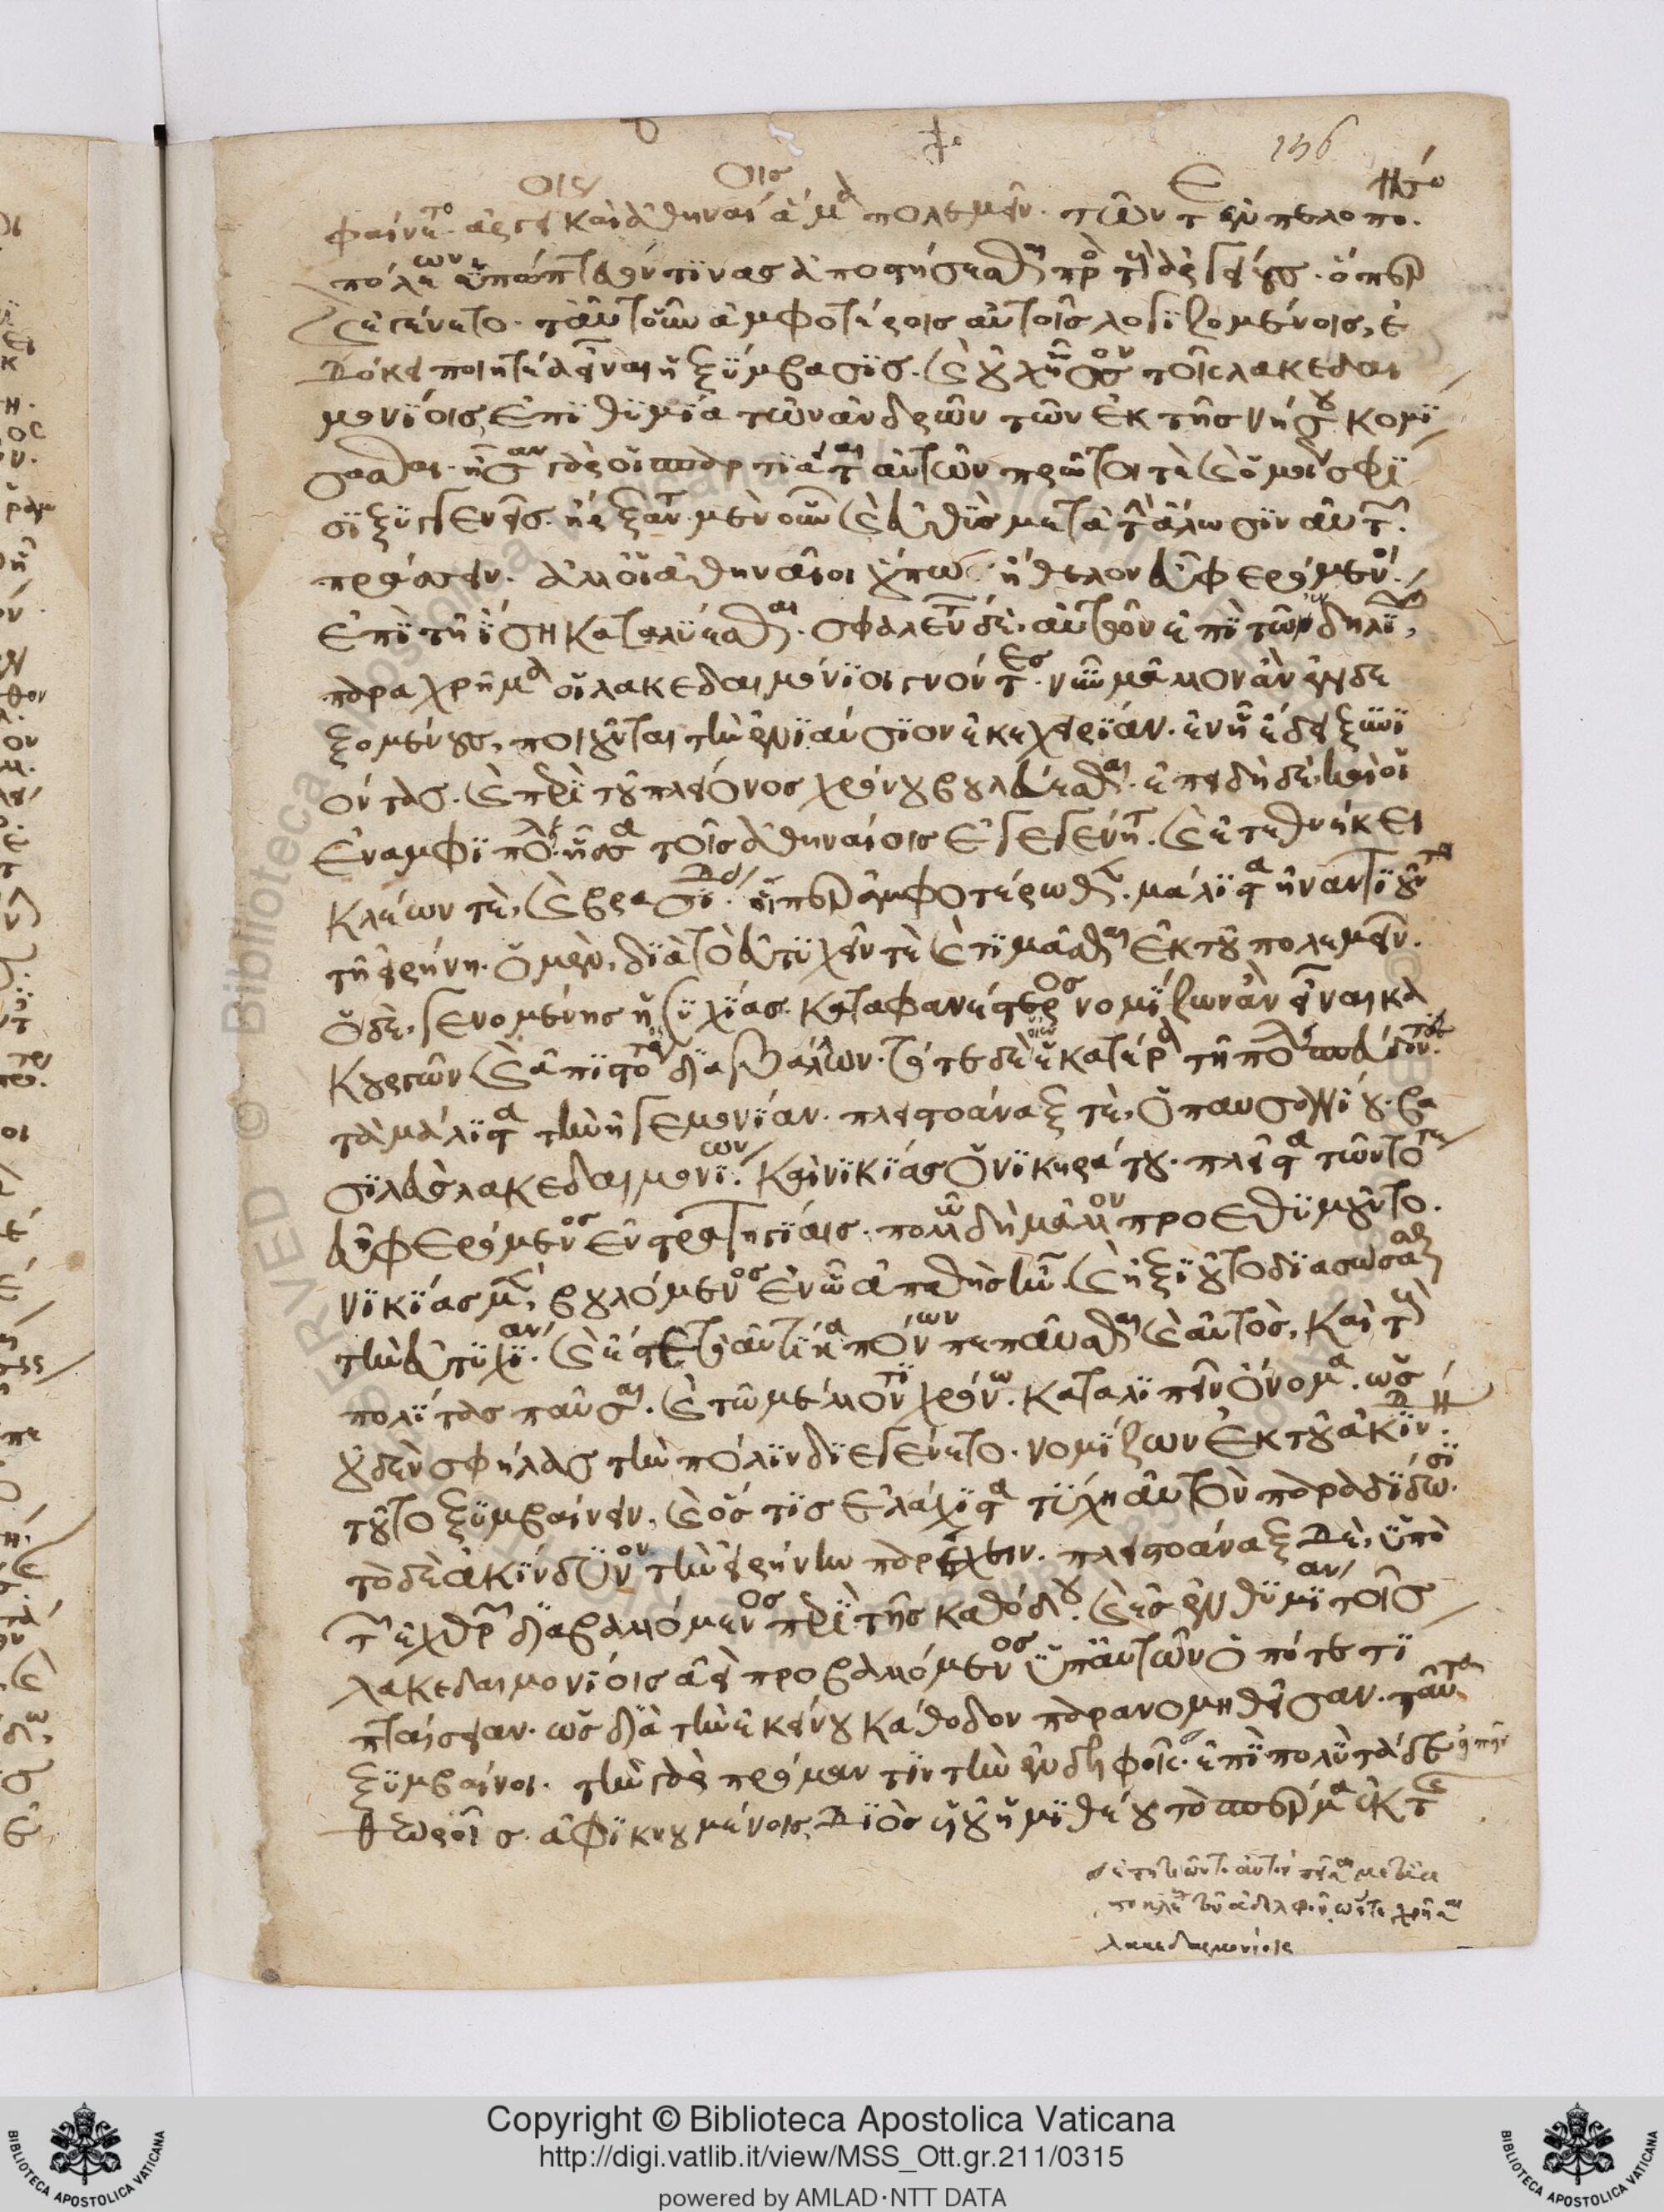 156
φαίνετο ἄργει καὶ ἀθηναίοις ἅμα πολεμεῖν. τῶν τε ἐν πελοποννήσω
πόλεων ὑπώπτευόν τινας ἀποστήσεσθαι πρὸς τοὺς ἀργείους. ὅπερ
ἐγένετο. ταῦτ' οὖν ἀμφοτέροις αὐτοῖς λογιζομένοις, ἐ
δόκει ποιητέα εἶναι ἡ ξύμβασις. καὶ οὐχ ἧσσον τοῖς λακεδαι
μονίοις, ἐπιθυμία τῶν ἀνδρῶν τῶν ἐκ τῆς νήσου κομί
σασθαι. ἦσαν γὰρ οἱ σπαρτιᾶται αὐτῶν πρῶτοί τε καὶ ὁμοίως σφί
σι ξυγγενεῖς. ἤρξαντο μὲν οὖν καὶ εὐθὺς μετὰ τὴν ἅλωσιν αὐτῶν
πράσσειν. ἀλλ' οἱ ἀθηναῖοι οὔπως ἤθελον εὖ φερόμενοι
ἐπὶ τῆ ἴση καταλύεσθαι. σφαλέντων δὲ αὐτῶν ἐπὶ τῶ δηλίω,
παραχρῆμα οἱ λακεδαιμόνιοι γνόντες νῦν μᾶλλον ἂν ἐνδε
ξομένους, ποιοῦνται τὴν ἐνιαύσιον ἐκεχειρίαν. ἐν ἧ ἔδει ξυνι
όντας. καὶ περὶ τοῦ πλείονος χρόνου βουλεύεσθαι. ἐπειδὴ δὲ καὶ ἡ
ἐν ἀμφιπόλει ἧσσα τοῖς ἀθηναίοις ἐγεγένητο. καὶ ἐτεθνήκει
κλέων τὲ, καὶ βρασίδας. οἵπερ ἀμφοτέρωθεν μάλιστα ἠναντιοῦντο
τῆ εἰρήνη. ὁ μὲν, διὰ τὸ εὐτυχεῖν τὲ καὶ τιμᾶσθαι ἐκ τοῦ πολεμεῖν.
ὁ δὲ, γενομένης ἡσυχίας καταφανέστερος νομίζων ἂν εἶναι κα
κουργῶν καὶ ἀπιστότερος διαβάλλων. τότε δὲ οἱ ἐν ἑκατέρα τῆ πόλει σπεύδοντες
τὰ μάλιστα τὴν ἡγεμονίαν. πλειστοάναξ τὲ, ὁ παυσανίου. βα
σιλεὺς λακεδαιμονίων. καὶ νικίας ὁ νικηράτου. πλεῖστα τῶν τότε
εὖ φερόμενος ἐν στρατηγίαις. πολλῶ δὴ μᾶλλον προεθυμοῦντο.
νικίας μὲν, βουλόμενος ἐν ὧ ἀπαθὴς ἦν. καὶ ἠξιοῦτο διασώσασθαι
τὴν εὐτυχίαν. καὶ ἔς τε τὸ αὐτίκα πόνων πεπαῦσθαι καὶ αὐτὸς, καὶ τοὺς
πολίτας παῦσαι. καὶ τῶ μέλλοντι χρόνω καταλιπεῖν ὄνομα. ὡς
οὐδὲν σφήλας τὴν πόλιν διεγένετο. νομίζων ἐκ τοῦ ἀκινδύνου
τοῦτο ξυμβαίνειν. καὶ ὅστις ἐλάχιστα τύχη αὑτὸν παραδίδωσι
τὸ δὲ ἀκίνδυνον τὴν εἰρήνην παρέχειν. πλειστοάναξ δὲ, ὑπὸ
τῶν ἐχθρῶν διαβαλλόμενος περὶ τῆς καθόδου. καὶ ἐς ἐνθυμίαν τοῖς
λακεδαιμονίοις ἀεὶ προβαλλόμενος ὑπ' αὐτῶν ὁπότε τι
πταίσειαν. ὡς διὰ τὴν ἐκείνου κάθοδον παρανομηθεῖσαν. ταῦτα
ξυμβαίνοι. τὴν γὰρ πρόμαντιν τὴν ἐν δελφοῖς. ἐπὶ πολὺ τάδε
θεωροῖς ἀφικνουμένοις, διὸς υἱοῦ ἡμιθέου τὸ σπέρμα ἐκ τῆς
ἐπητιῶντο αὐτὸν πεῖσαι μετὰ
τοκλέους τοῦ ἀδελφοῦ, ὥστε χρῆσαι
λακεδαιμονίοις
Copyright © Biblioteca Apostolica Vaticana
http://digi.vatlib.it/view/MSS_Ott.gr.211/0315
powered by AMLAD·NTT DATA
BIBLIOTECA APOSTOLICA VATICANA
BIBLIOTECA APOSTOLICA VATICANA